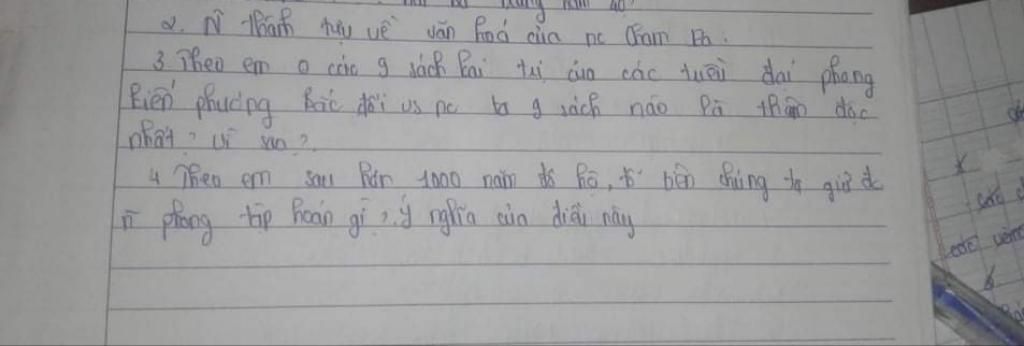 2. Ñ thành tựu về văn hoá của nc Cham Pa.
3. Theo em o các 9 sách cai trị của các triều đại phong
kiến phương bắc đối vs nc ta 9 sách nào là thâm độc
nhất? vì sao?
4. Theo em sau hơn 1000 năm đô hộ, tổ tiên chúng ta giữ đc
n̄ phong tập hoán gì? Ý nghĩa của điều này